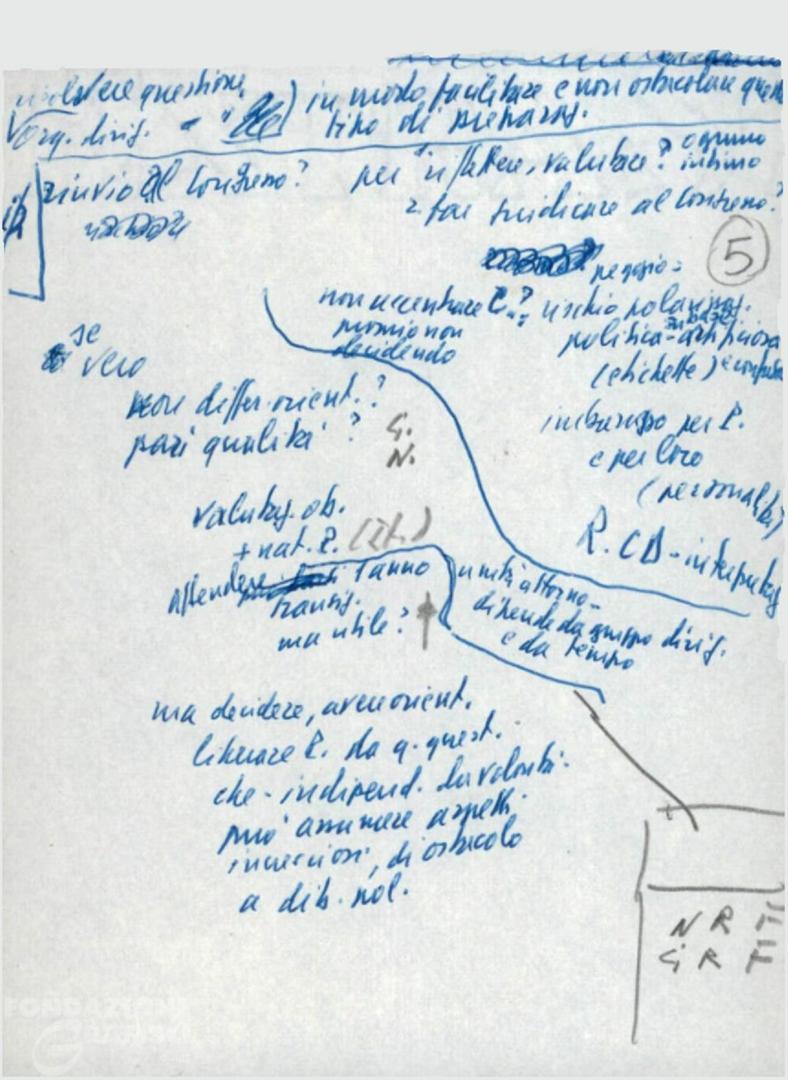 risolvere questione in modo facilitare e non ostacolare
org. dirig. - tipo di preparaz.
rinvio al Congresso? per riflettere, valutare? ognuno
intimo
far giudicare al Congresso?
5
peggio:
non accentrare P.? rischio polarizzaz.
proprio non politica - artificiosa
decidendo (etichette)
se
vero
differ. orient.?
pari qualità?
G.
N.
imbarazzo per P.
e per loro
(personalità)
valutaz. ob.
+ nat. P. (It.)
R. CD - interpretaz
attendere 1 anno unità attorno -
transiz. dipende da gruppo dirig.
ma utile? e da tempo
ma decidere, avere orient.
liberare P. da q. quest.
che - indipend. da volontà -
può assumere aspetti
incresciosi, di ostacolo
a dib. pol.
N R
G R F
FONDAZIONE